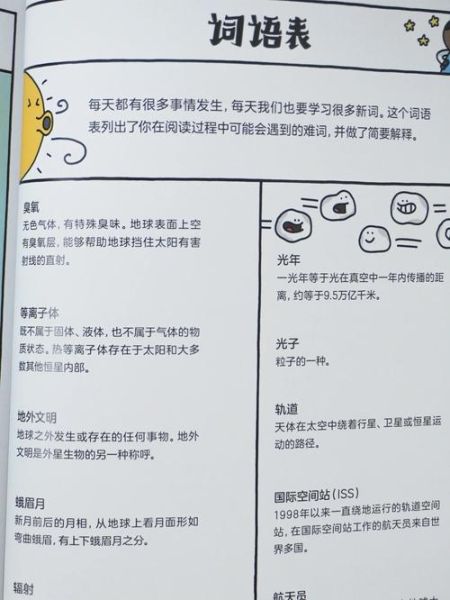 词语表
每天都有很多事情发生，每天我们也要学习很多新词。这个词语
表列出了你在阅读过程中可能会遇到的难词，并做了简要解释。
臭氧
无色气体，有特殊臭味。地球表面上空
有臭氧层，能够帮助地球挡住太阳有害
射线的直射。
等离子体
既不属于固体、液体，也不属于气体的物
质状态。热等离子体存在于太阳和大多
数其他恒星内部。
地外文明
地球之外发生或存在的任何事物。地外
文明是外星生物的另一种称呼。
蛾眉月
新月前后的月相，从地球上看月面形如
弯曲蛾眉，有上下蛾眉月之分。
辐射
光年
一光年等于光在真空中一年内传播的距
离，约等于9.5万亿千米。
光子
粒子的一种。
轨道
天体在太空中绕着行星、卫星或恒星运
动的路径。
国际空间站（ISS）
1998年以来一直绕地运行的轨道空间
站，在国际空间站工作的航天员来自世
界多国。
航天员